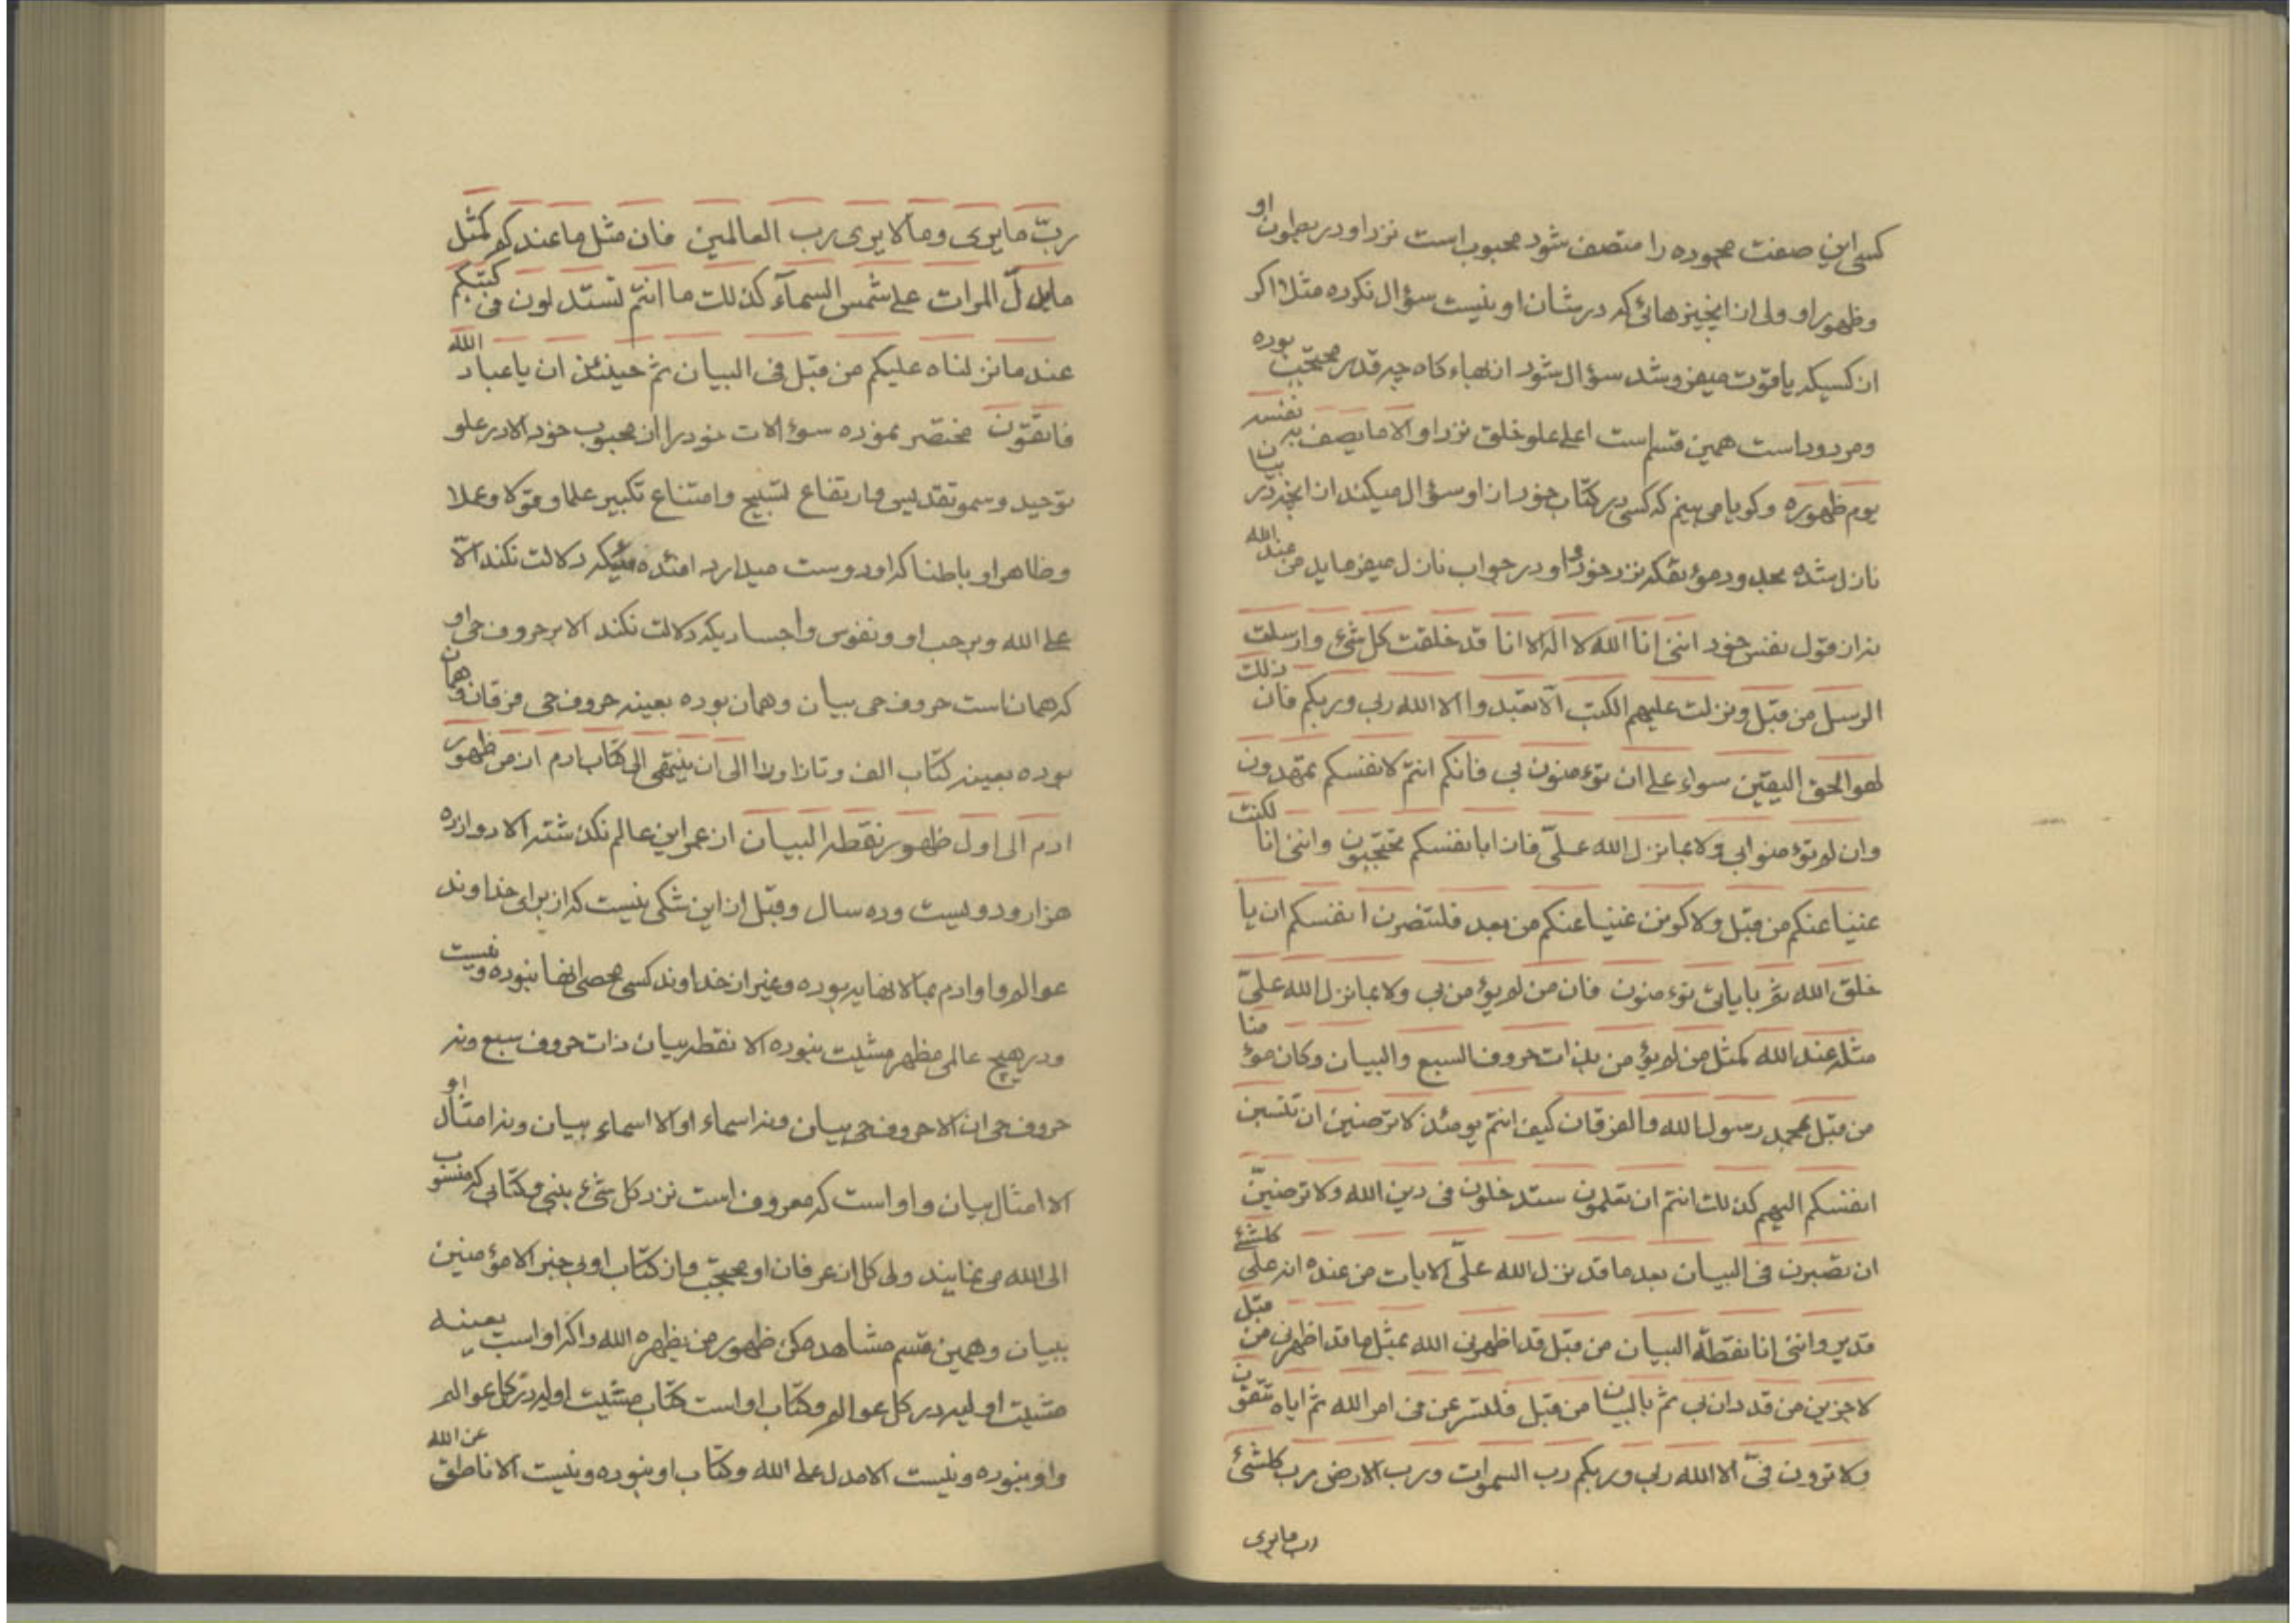 کسی این صفت محموده را متصف شود محبوب است نزد او در بطون او
و ظهور او ولی از انچیزهائی که در شان او نیست سؤال نکرده مثلا اگر
از کسیکه یاقوت میفروشد سؤال شود از بهاء کاه چه قدر محتجب بوده
و مردود است همین قسم است اعلی علو خلق نزد او الا ما یصف به نفسه
یوم ظهوره و کویا می بینم که کسی در کتاب خود از او سؤال میکند از انچه در بیان
نازل شده محل ودموئقکه نزد خود و او در جواب نازل میفرماید من عند الله
نه از قول نفس خود اننی انا الله لا اله الا انا قد خلقت کل شئ وارسلت
الرسل من قبل ونزلت علیهم الکتب الا تعبدوا الا الله ربی وربکم فان ذلک
لهو الحق الیقین سواء علی ان تؤمنون بی فانکم انتم لانفسکم تمهدون
وان لم تؤمنوا بی ولا بما نزل الله علیّ فاذا بانفسکم تحتجبون واننی انا لکنت
غنیا عنکم من قبل ولاکونن غنیا عنکم من بعد فلتنصرن انفسکم ان یا
خلق الله ثم بایاتی تؤمنون فان من لم یؤمن بی ولا بما نزل الله علیّ
مثله عند الله کمثل من لم یؤمن بذات حروف السبع والبیان وکان مؤمنا
من قبل بمحمد رسول الله والفرقان کیف انتم یومئذ لا ترضین ان تنسبن
انفسکم الیهم کذلک انتم ان تعلمون ستدخلون فی دین الله ولا ترضینّ
ان تصبرن فی البیان بعد ما قد نزل الله علیّ الایات من عنده انه علی کلشئ
قدیر واننی انا نقطة البیان من قبل قد اظهرنی الله بمثل ما قد اظهرنی من قبل
لاجزین من قد دان بی ثم بالبیان من قبل فلتسرعن فی امر الله ثم ایاه تتقون
ولا ترون فیّ الا الله ربی وربکم رب السموات ورب الارض رب کلشئ
رب ما یری
ربّ ما یری وما لا یری رب العالمین فان مثل ما عندکم کمثل
ما یدلّ المرات علی شمس السمآء کذلک ما انتم تستدلون فی کتبکم
عند ما نزلناه علیکم من قبل فی البیان ثم حینئذ ان یا عباد الله
فاتقون مختصر نموده سوءالات خود را از محبوب خود الا در علو
توحید و سمو تقدیس و ارتفاع تسبیح و امتناع تکبیر علما و قولا و عملا
و ظاهرا و باطنا که او دوست میدارد افئده ئیکه دلالت نکند الّا
علی الله و بر حب او و نفوس و اجسادیکه دلالت نکند الا بر حروف حی او
که همانست حروف حی بیان و همان بوده بعینه حروف حی فرقان و همان
بوده بعینه کتاب الف و تا و را الی ان ینتهی الی کتاب ادم از من ظهور
ادم الی اول ظهور نقطه البیان از عمر این عالم نکذشته الا دوازده
هزار و دویست و ده سال و قبل از این شکی نیست که از برای خداوند
عوالم و اوادم بمالانهایه بوده و غیر از خداوند کسی محصی انها نبوده و نیست
و در هیچ عالمی مظهر مشیت نبوده الا نقطه بیان ذات حروف سبع و نه
حروف حی ان الا حروف حی بیان و نه اسماء او الا اسماء بیان و نه امثال او
الا امثال بیان و او است که معروف است نزد کل شئ بنبی و کتابی که منسوب
الی الله می نمایند ولی کل از عرفان او محتجب و از کتاب او بی خبر الا مؤمنین
ببیان و همین قسم مشاهده کن ظهور من یظهره الله را که او است بعینه
مشیت اولیه در کل عوالم و کتاب او است کتاب مشیت اولیه در کل عوالم
و او نبوده و نیست الا مدل علی الله و کتاب او نبوده و نیست الا ناطق عن الله